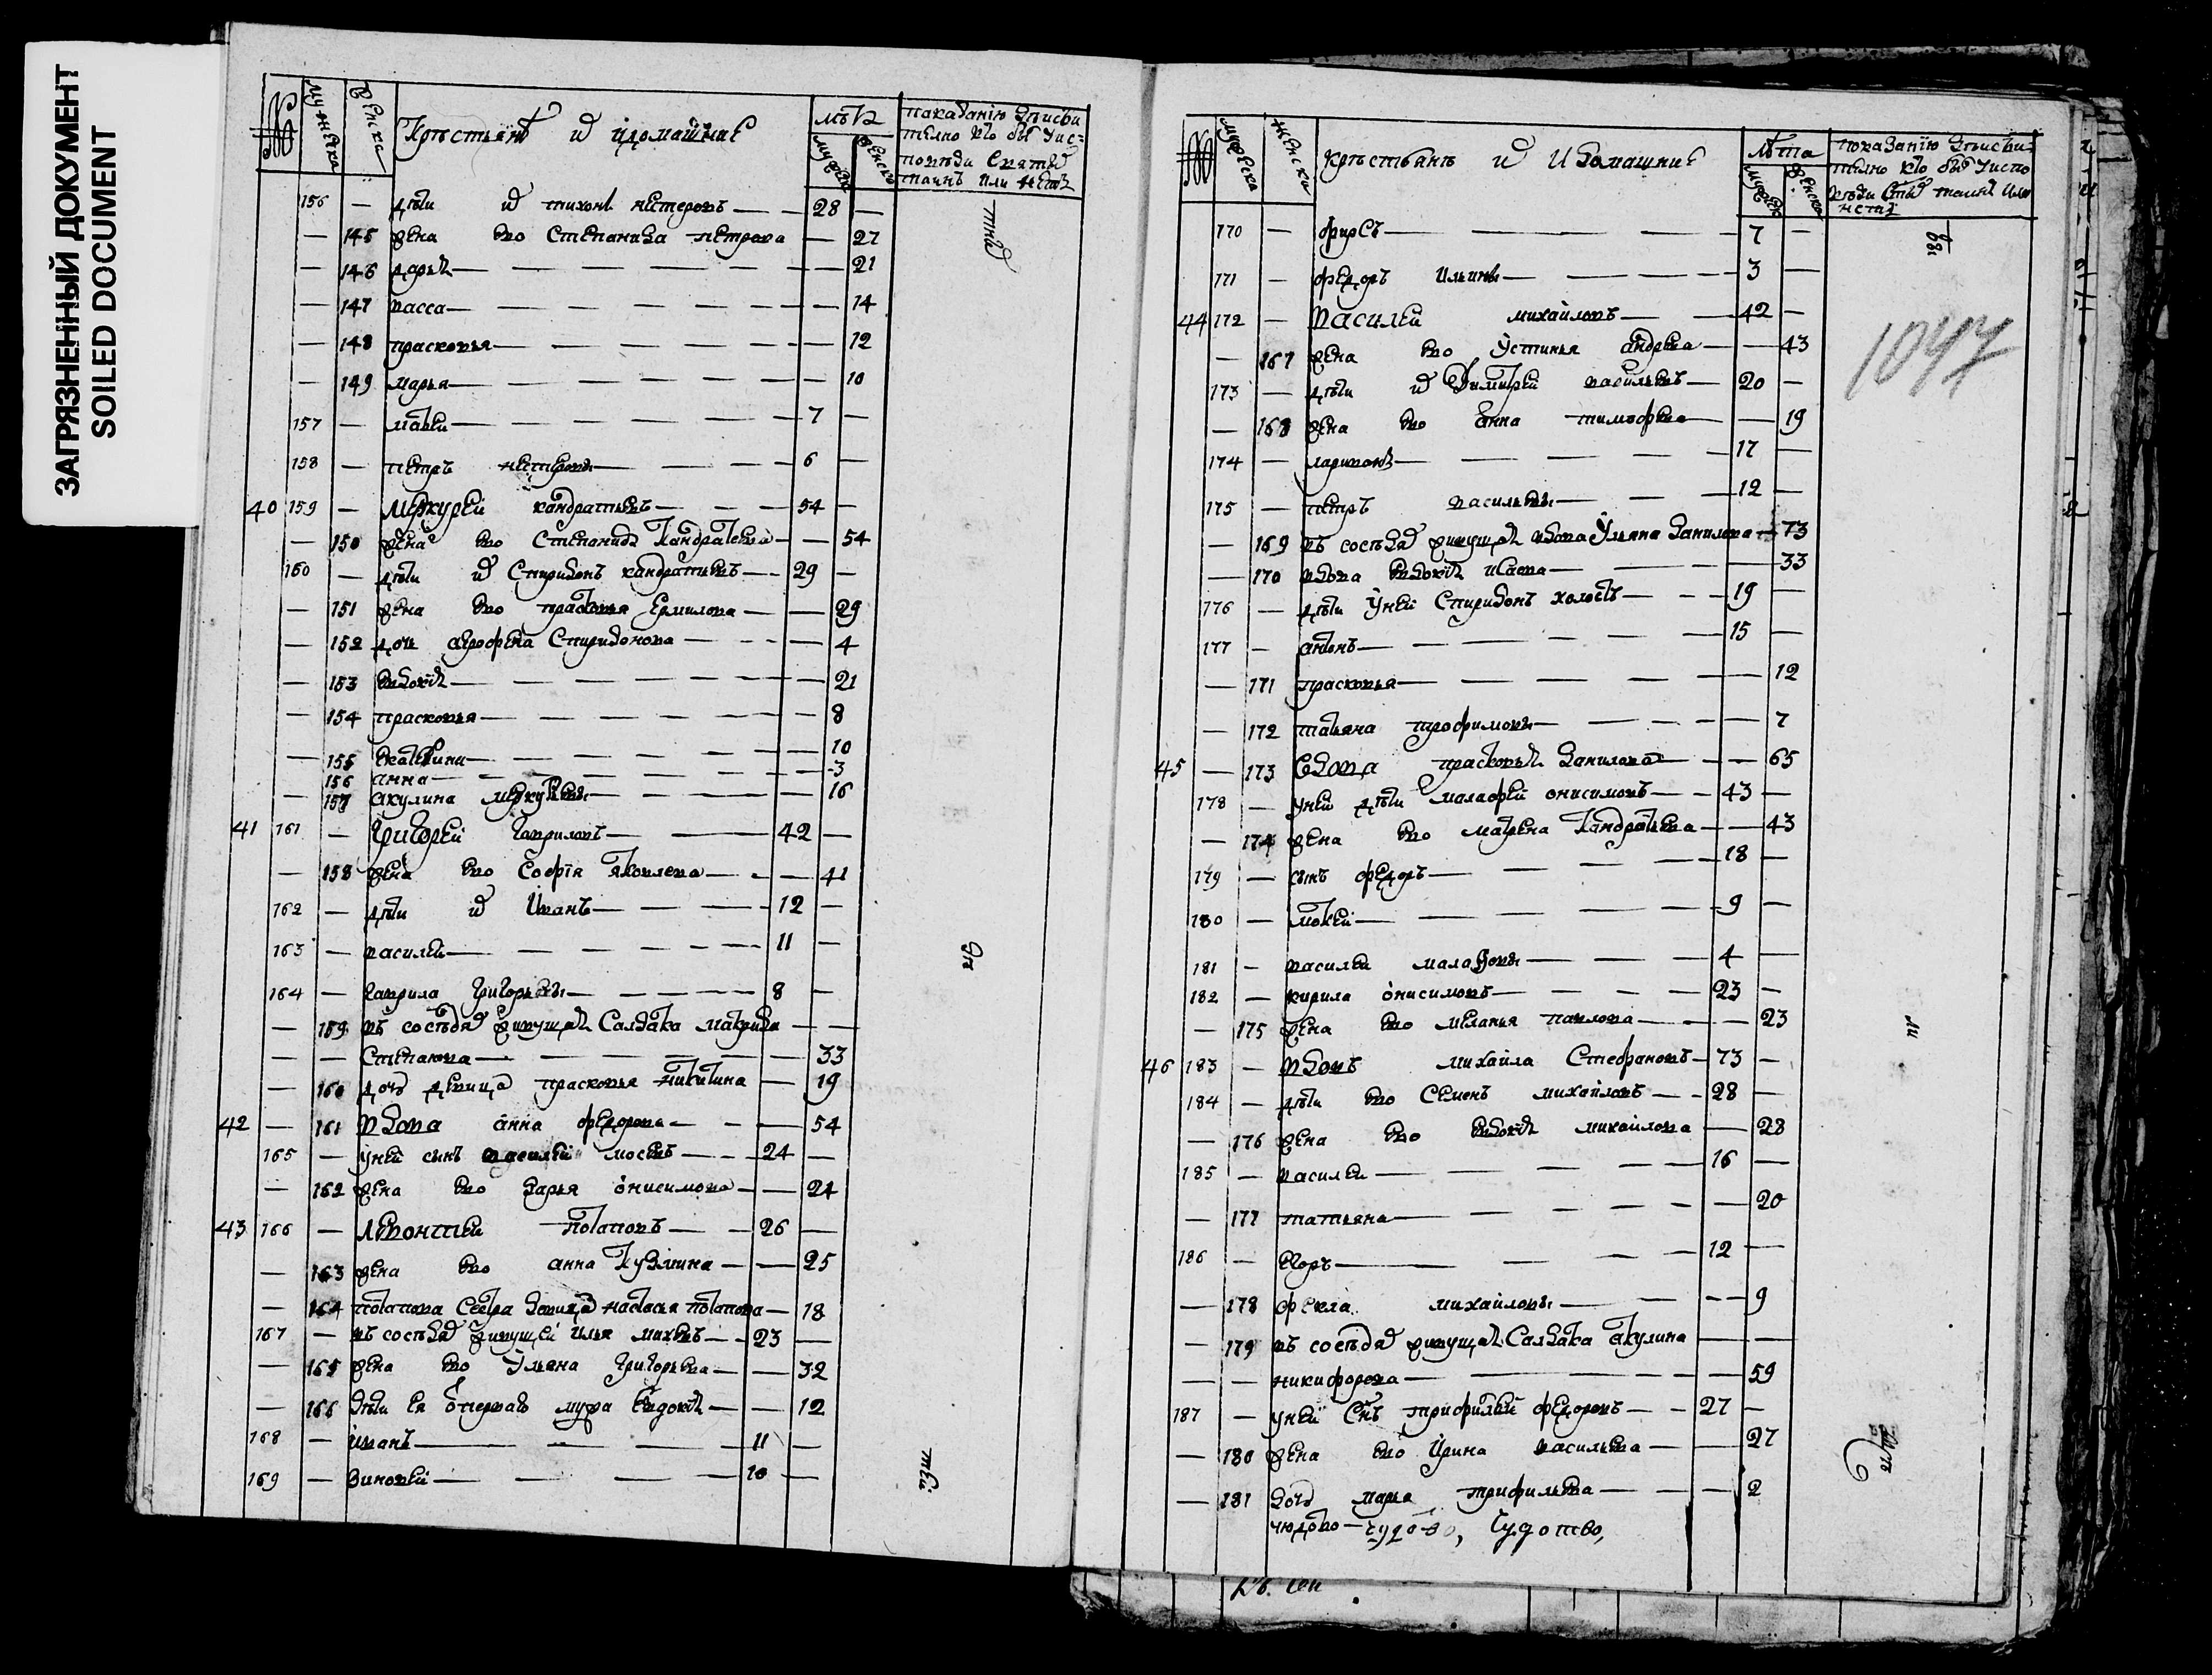 ЗАГРЯЗНЕННЫЙ ДОКУМЕНТ
SOILED DOCUMENT
мужеска
женска
Крѣстьянѣ и ихдомашние
мужеск
женск
156 — дѣти и тихонъ нестеровъ — 28 —
— 145 жена ево степанида петрова — 27
— 146 дарья — 21
— 147 васса — 14
— 148 прасковья — 12
— 149 марья — 10
157 — матвеи — 7 —
158 — петръ нестеровы — 6 —
40 159 — меркурей кандратьевъ — 54 —
— 150 жена ево степанида кандратьева — 54
160 — дѣти и спиридонъ кандратьевъ — 29 —
— 151 жена ево прасковья ермилова — 29
— 152 дочь афрофена спиридонова — 4
— 153 евдокія — 21
— 154 прасковья — 8
— 155 екатерина — 10
156 анна — 3
— 157 акулина меркурьевы — 16
41 161 — григорей гавриловъ — 42 —
— 158 жена ево софія яковлева — 41
162 — дѣти и иванъ — 12 —
163 — василеи — 11 —
164 — гаврила григорьевы — 8 —
— 159 въ сосѣдяхъ живущая салдатка макрида — —
— — степанова — 33
— 160 дочь девица прасковья никитина — 19
42 — 161 вдова анна федорова — 54
165 — унеи сынъ василеи мосеевъ — 24 —
— 162 жена ево дарья онисимова — 24
43 166 — леонтеи потаповъ — 26 —
— 163 жена ево анна кузмина — 25
— 164 потапова сестра девица настасья потапова — 18
167 — въ сосѣдяхъ живущеи илья михеевъ — 23 —
— 165 жена ево ульяна григорьева — 32
— 166 дѣти ея отперваго мужа евдокія — 12
168 — иванъ — 11 —
169 — зиновеи — 10 —
мужеска
женска
Крѣстьянѣ и ихдомашние
лѣта
мужеск
женска
170 — фирсъ — 7 —
171 — федоръ ильины — 3 —
44 172 — василеи михайловъ — 42 —
— 167 жена ево устинья андреева — 43
173 — дѣти и димитреи васильевъ — 20 —
— 168 жена ево анна тимофеева — 19
174 — ларивонъ — 17 —
175 — петръ васильевы — 12 —
— 169 въ сосѣдяхъ живущая вдова ульяна данилова — 73
— 170 вдова евдокія исаева — 33
176 — дѣти унеи спиридонъ холостъ — 19 —
177 — антонъ — 15 —
— 171 прасковья — 12
— 172 татьяна трофимовы — 7
45 — 173 вдова прасковья данилова — 65
178 — унеи дѣти малафеи онисимовъ — 43 —
— 174 жена ево матрена кандратьева — 43
179 — сынъ федоръ — 18 —
180 — мокеи — 9 —
181 — василеи малафеевы — 4 —
182 — кирила онисимовъ — 23 —
— 175 жена ево меланья павлова — 23
46 183 — вдовъ михайла стефановъ — 73 —
184 — дѣти ево семенъ михайловъ — 28 —
— 176 жена ево евдокія михайлова — 28
185 — василеи — 16 —
— 177 татьяна — 20
186 — егоръ — 12 —
— 178 фекла михайловы — 9
— 179 въ сосѣдяхъ живущая салдатка акулина — —
— — никифорова — 59
187 — унеи снъ трифилеи федоровъ — 27 —
— 180 жена ево ирина васильева — 27
— 181 дочь марья трифильева — 2
1047